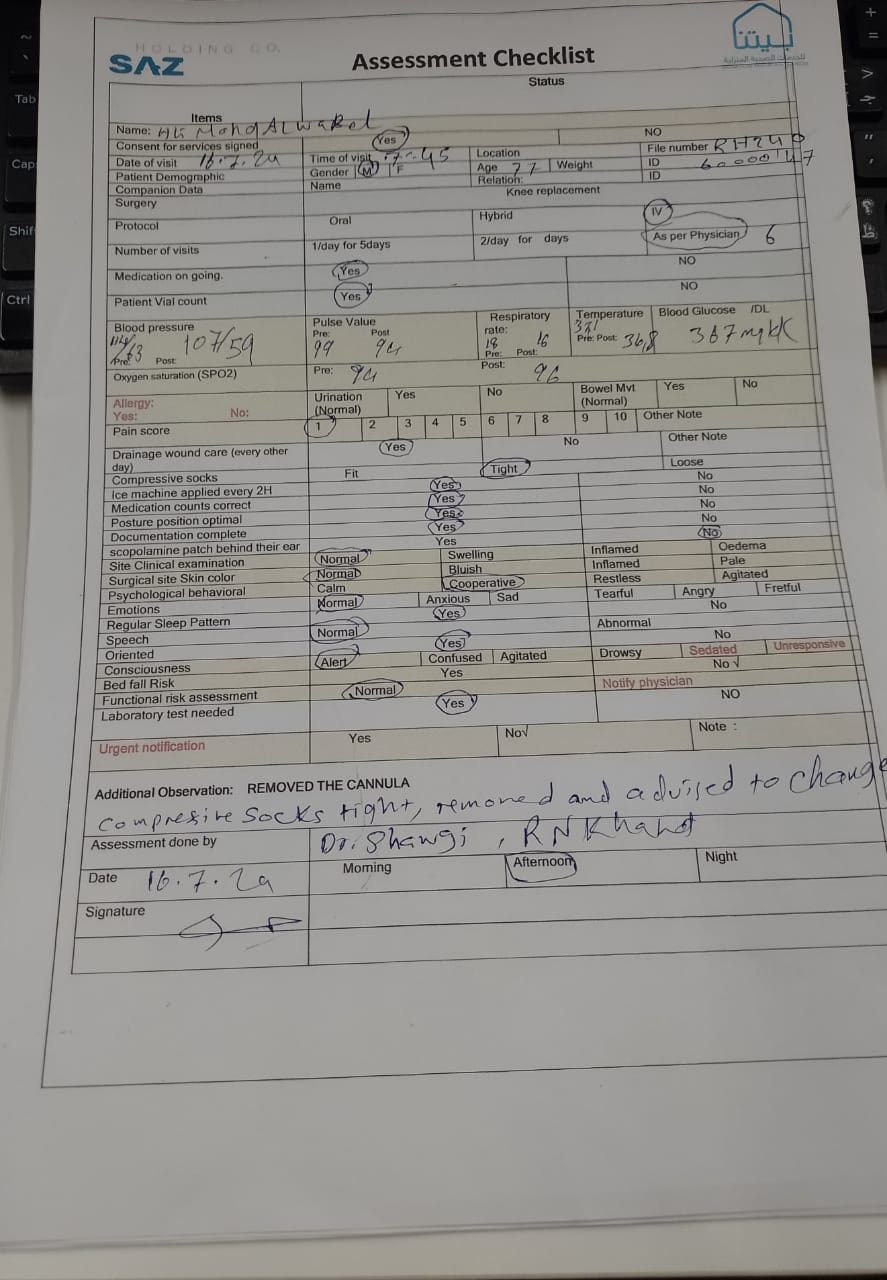 HOLDING CO.
SAZ
Assessment Checklist
بيتنا
للخدمات الصحية المنزلية
Items Status
Name: Ali Mohd AL
Consent for services signed Yes NO
Date of visit 16.7.24 Time of visit :45 Location File number RH240
Patient Demographic Gender M F Age 77 Weight ID
Companion Data Name Relation: ID
Surgery Knee replacement
Protocol Oral Hybrid IV
Number of visits 1/day for 5days 2/day for days As per Physician 6
Medication on going. Yes NO
Patient Vial count Yes NO
Blood pressure Pulse Value Respiratory rate: Temperature Blood Glucose /DL
Pre: 114/63 Post: 107/59 Pre: 99 Post 94 Pre: 18 Post: 16 Pre: Post: 36,8 367
Oxygen saturation (SPO2) Pre: 94 Post: 96
Allergy: Yes: No: Urination (Normal) Yes No Bowel Mvt (Normal) Yes No
Pain score 1 2 3 4 5 6 7 8 9 10 Other Note
Drainage wound care (every other day) Yes No Other Note
Compressive socks Fit Tight Loose
Ice machine applied every 2H Yes No
Medication counts correct Yes No
Posture position optimal Yes No
Documentation complete Yes No
scopolamine patch behind their ear Yes No
Site Clinical examination Normal Swelling Inflamed Oedema
Surgical site Skin color Normal Bluish Inflamed Pale
Psychological behavioral Calm Cooperative Restless Agitated
Emotions Normal Anxious Sad Tearful Angry Fretful
Regular Sleep Pattern Yes No
Speech Normal Abnormal
Oriented Yes No
Consciousness Alert Confused Agitated Drowsy Sedated Unresponsive
Bed fall Risk Yes No √
Functional risk assessment Normal Notify physician
Laboratory test needed Yes NO
Urgent notification Yes No√ Note :
Additional Observation: REMOVED THE CANNULA
compressive socks tight, removed and advised to change
Assessment done by Dr. Shawgi , RN
Date 16.7.24 Morning Afternoon Night
Signature
Tab
Cap
Shif
Ctrl